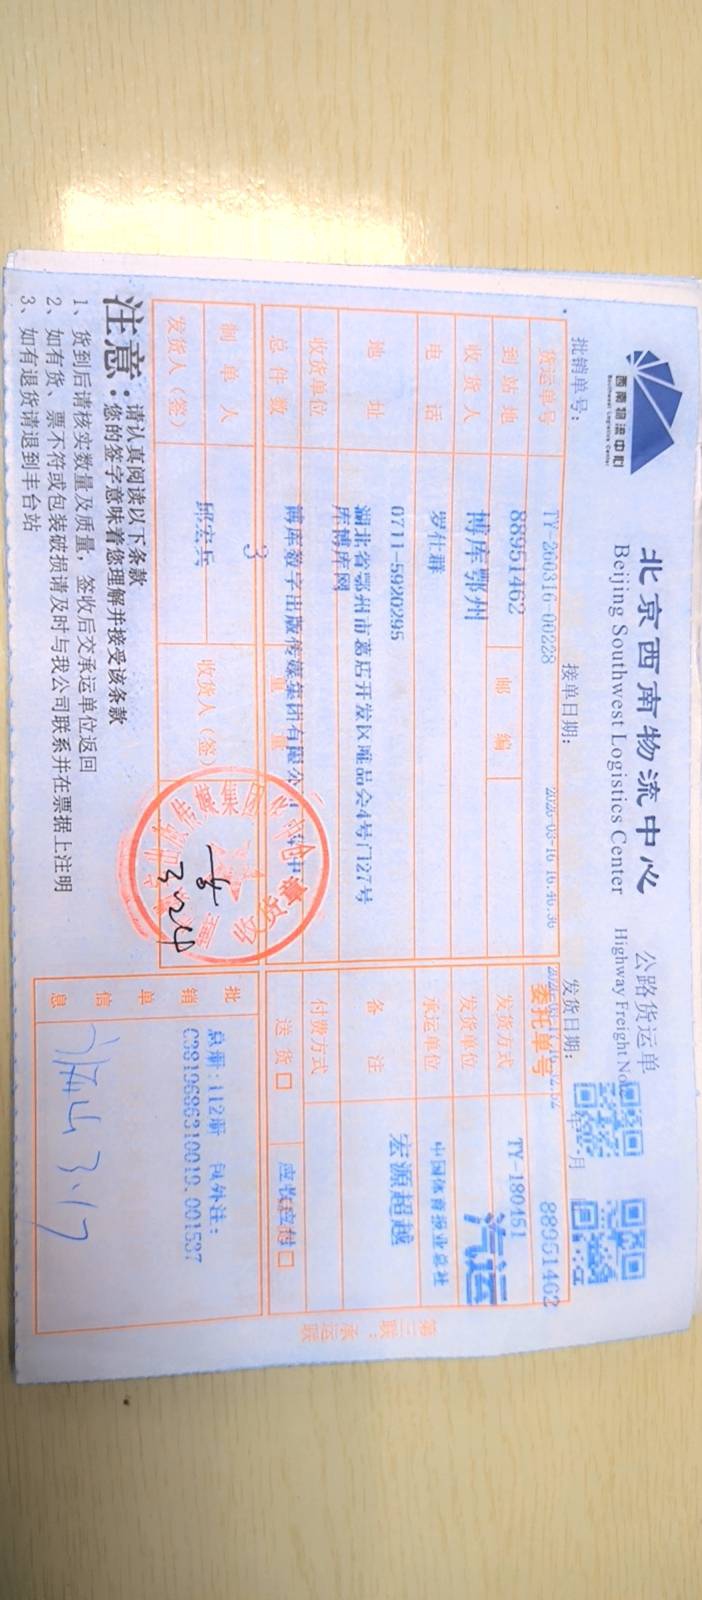 西南物流中心
Southwest Logistics Center
北京西南物流中心 公路货运单
Beijing Southwest Logistics Center Highway Freight No.
批销单号： 接单日期： 发货日期： 年 月
货运单号 TY-260316-00228 2026-03-16 16:46:36 委托单号 88951462
到站地 88951462 邮编 发货方式 TY-180451
收货人 博库鄂州 发货单位 汽运
电话 罗仕群 承运单位 中国体育报业总社
地址 0711-5920295 备注 宏源超越
湖北省鄂州市葛店开发区唯品会4号门27号
收货单位 库博库网 付费方式
总件数 博库数字出版传媒集团有限公司
3 重量 送货□ 应收应付□
制单人 邱宏兵 收货人（签）
发货人（签）
收货章
3.24
批销单信息
总册：112册 包外注：
C3819686310019.001537
3.17
第三联：承运联
注意：请认真阅读以下条款
您的签字意味着您理解并接受该条款
1、货到后请核实数量及质量，签收后交承运单位返回
2、如有货、票不符或包装破损请及时与我公司联系并在票据上注明
3、如有退货请退到丰台站